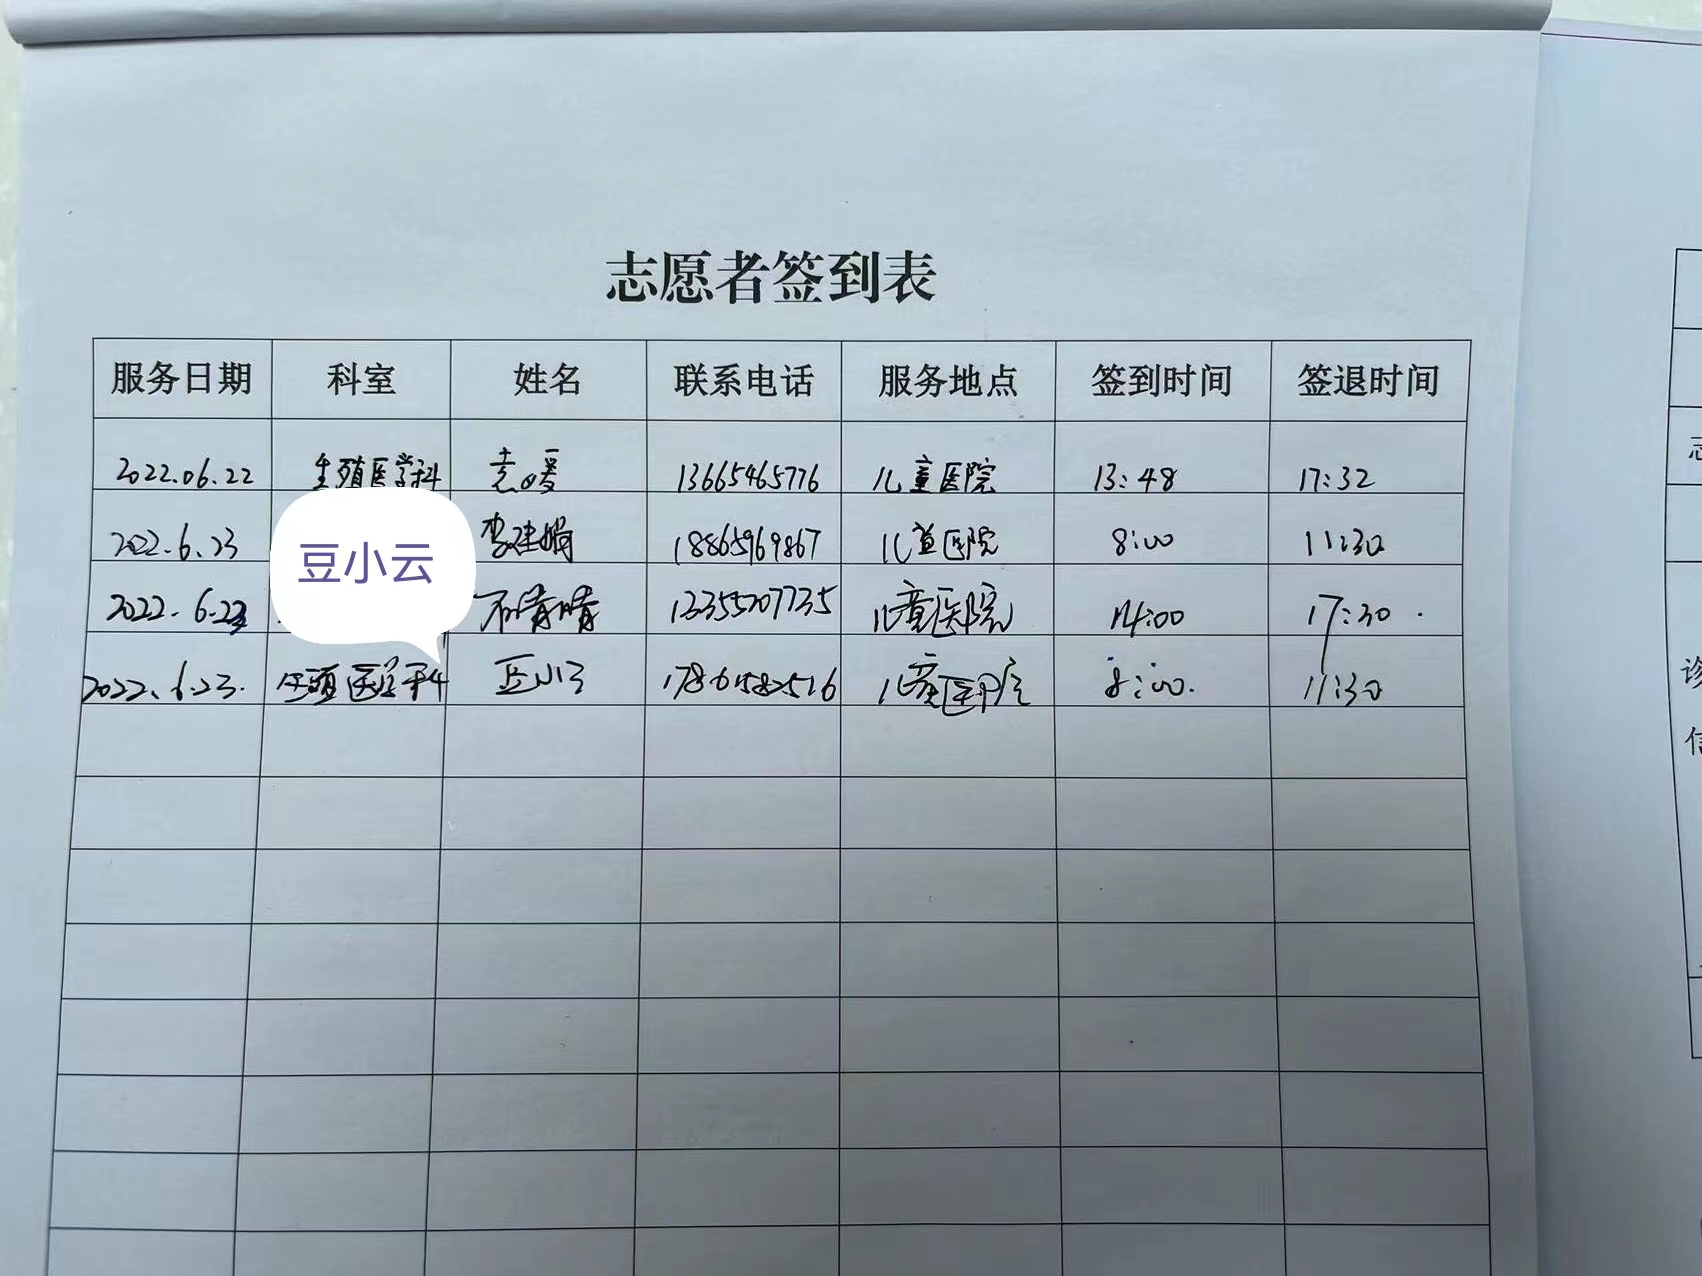 志愿者签到表
服务日期 科室 姓名 联系电话 服务地点 签到时间 签退时间
2022.06.22 生殖医学科 13665465776 儿童医院 13:48 17:32
2022.6.23 李建娟 18865969867 儿童医院 8:00 11:30
豆小云
2022.6.23 石晴晴 13355207735 儿童医院 14:00 17:30
2022.6.23. 生殖医学科 豆小云 儿童医院 8:00. 11:30
诊
信